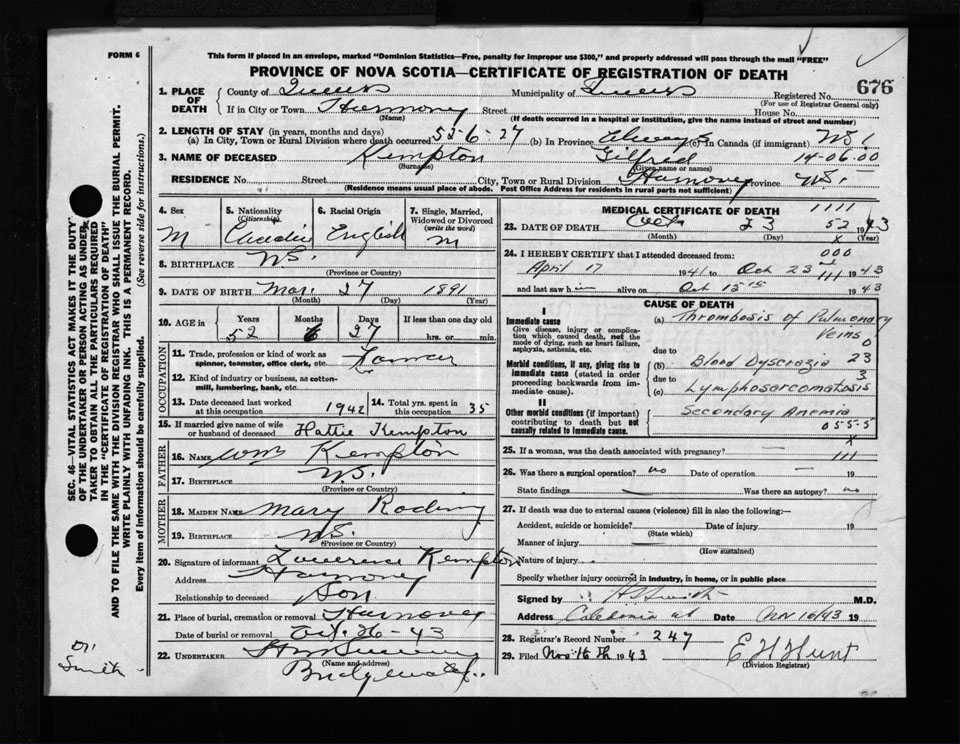 FORM 6
This form if placed in an envelope, marked "Dominion Statistics—Free, penalty for improper use $300," and properly addressed will pass through the mail "FREE"
PROVINCE OF NOVA SCOTIA—CERTIFICATE OF REGISTRATION OF DEATH
676
1. PLACE OF DEATH County of Queens Municipality of Queens Registered No.
(For use of Registrar General only)
If in City or Town Harmony Street House No.
(Name) (If death occurred in a hospital or institution, give the name instead of street and number)
2. LENGTH OF STAY (in years, months and days)
(a) In City, Town or Rural Division where death occurred 55-6-27 (b) In Province Always (c) In Canada (if immigrant) NS 1
3. NAME OF DECEASED Kempton Gilfred 14-06-00
(Surname) (Given name or names)
RESIDENCE No. Street City, Town or Rural Division Harmony Province N.S.
(Residence means usual place of abode. Post Office Address for residents in rural parts not sufficient)
4. Sex M
5. Nationality (Citizenship) Canadian
6. Racial Origin English
7. Single, Married, Widowed or Divorced (write the word) M
8. BIRTHPLACE N.S.
(Province or Country)
9. DATE OF BIRTH Mar. 27 1891
(Month) (Day) (Year)
10. AGE in Years Months Days If less than one day old
52 6 27 hrs. or min.
OCCUPATION
11. Trade, profession or kind of work as spinner, teamster, office clerk, etc. Farmer
12. Kind of industry or business, as cotton-mill, lumbering, bank, etc.
13. Date deceased last worked at this occupation 1942 14. Total yrs. spent in this occupation 35
15. If married give name of wife or husband of deceased Hattie Kempton
FATHER
16. NAME Wm Kempton
17. BIRTHPLACE N.S.
(Province or Country)
MOTHER
18. MAIDEN NAME Mary
19. BIRTHPLACE N.S.
(Province or Country)
20. Signature of informant Lawrence Kempton
Address Harmony
Relationship to deceased Son.
21. Place of burial, cremation or removal Harmony
Date of burial or removal Oct. 26-43
22. UNDERTAKER
(Name and address)
MEDICAL CERTIFICATE OF DEATH 1111
23. DATE OF DEATH Oct 23 52 1943
(Month) (Day) x (Year)
24. I HEREBY CERTIFY that I attended deceased from: 000
April 17 1941 to Oct 23 111 1943
and last saw him alive on Oct 1943
CAUSE OF DEATH
I
Immediate cause
Give disease, injury or complication which caused death, not the mode of dying, such as heart failure, asphyxia, asthenia, etc.
(a) Thrombosis of Pulmonary Veins 0
due to
Morbid conditions, if any, giving rise to immediate cause (stated in order proceeding backwards from immediate cause).
(b) Blood Dyscrazia 23
due to 3
(c) Lymphosarcomatosis
II
Other morbid conditions (if important) contributing to death but not causally related to immediate cause.
Secondary Anemia
055-5
x
25. If a woman, was the death associated with pregnancy? — 111
26. Was there a surgical operation? no Date of operation — 19
State findings Was there an autopsy? no
27. If death was due to external causes (violence) fill in also the following:—
Accident, suicide or homicide? Date of injury 19
(State which)
Manner of injury
(How sustained)
Nature of injury
Specify whether injury occurred in industry, in home, or in public place
Signed by H S Smith M.D.
Address Caledonia Date Nov 16/43 19
28. Registrar's Record Number 247
29. Filed Nov 16th 1943 E H Hunt
(Division Registrar)
SEC. 46—VITAL STATISTICS ACT MAKES IT THE DUTY
OF THE UNDERTAKER OR PERSON ACTING AS UNDER-
TAKER TO OBTAIN ALL THE PARTICULARS REQUIRED
IN THE "CERTIFICATE OF REGISTRATION OF DEATH"
AND TO FILE THE SAME WITH THE DIVISION REGISTRAR WHO SHALL ISSUE THE BURIAL PERMIT.
WRITE PLAINLY WITH UNFADING INK. THIS IS A PERMANENT RECORD.
Every item of information should be carefully supplied. (See reverse side for instructions.)
Dr. Smith